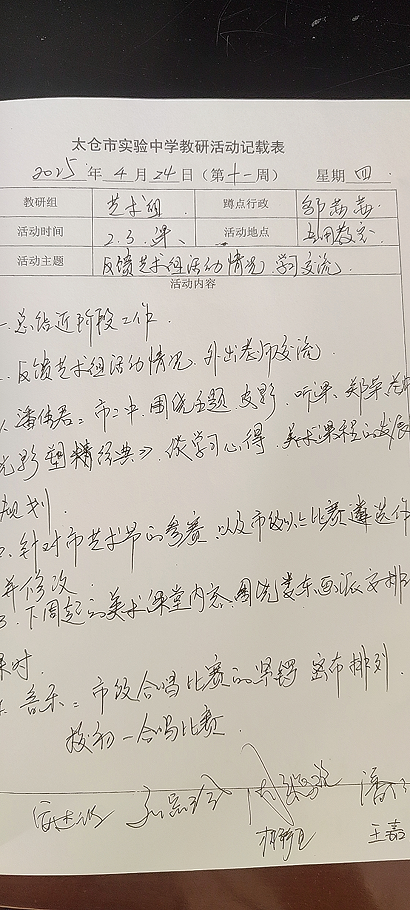 太仓市实验中学教研活动记载表
2025 年 4 月 24 日（第 十一 周） 星期 四
教研组 艺术组 蹲点行政 邹茜茜
活动时间 2.3.课、 活动地点
活动主题 反馈艺术组活动情况 学习交流
活动内容
一.总结近阶段工作.
反馈艺术组活动情况.外出老师交流
潘倩君：市二中.围绕主题.皮影.听课.郑荣老师
光影塑精经典》谈学习心得.美术课程的发展
规划.
2.针对市艺术节的参赛.以及市级以上比赛遴选作
并修改.
3.下周起的美术课堂内容.围绕娄东画派安排
课时.
音乐：市级合唱比赛的 排列.
校初一合唱比赛.
潘
王嘉